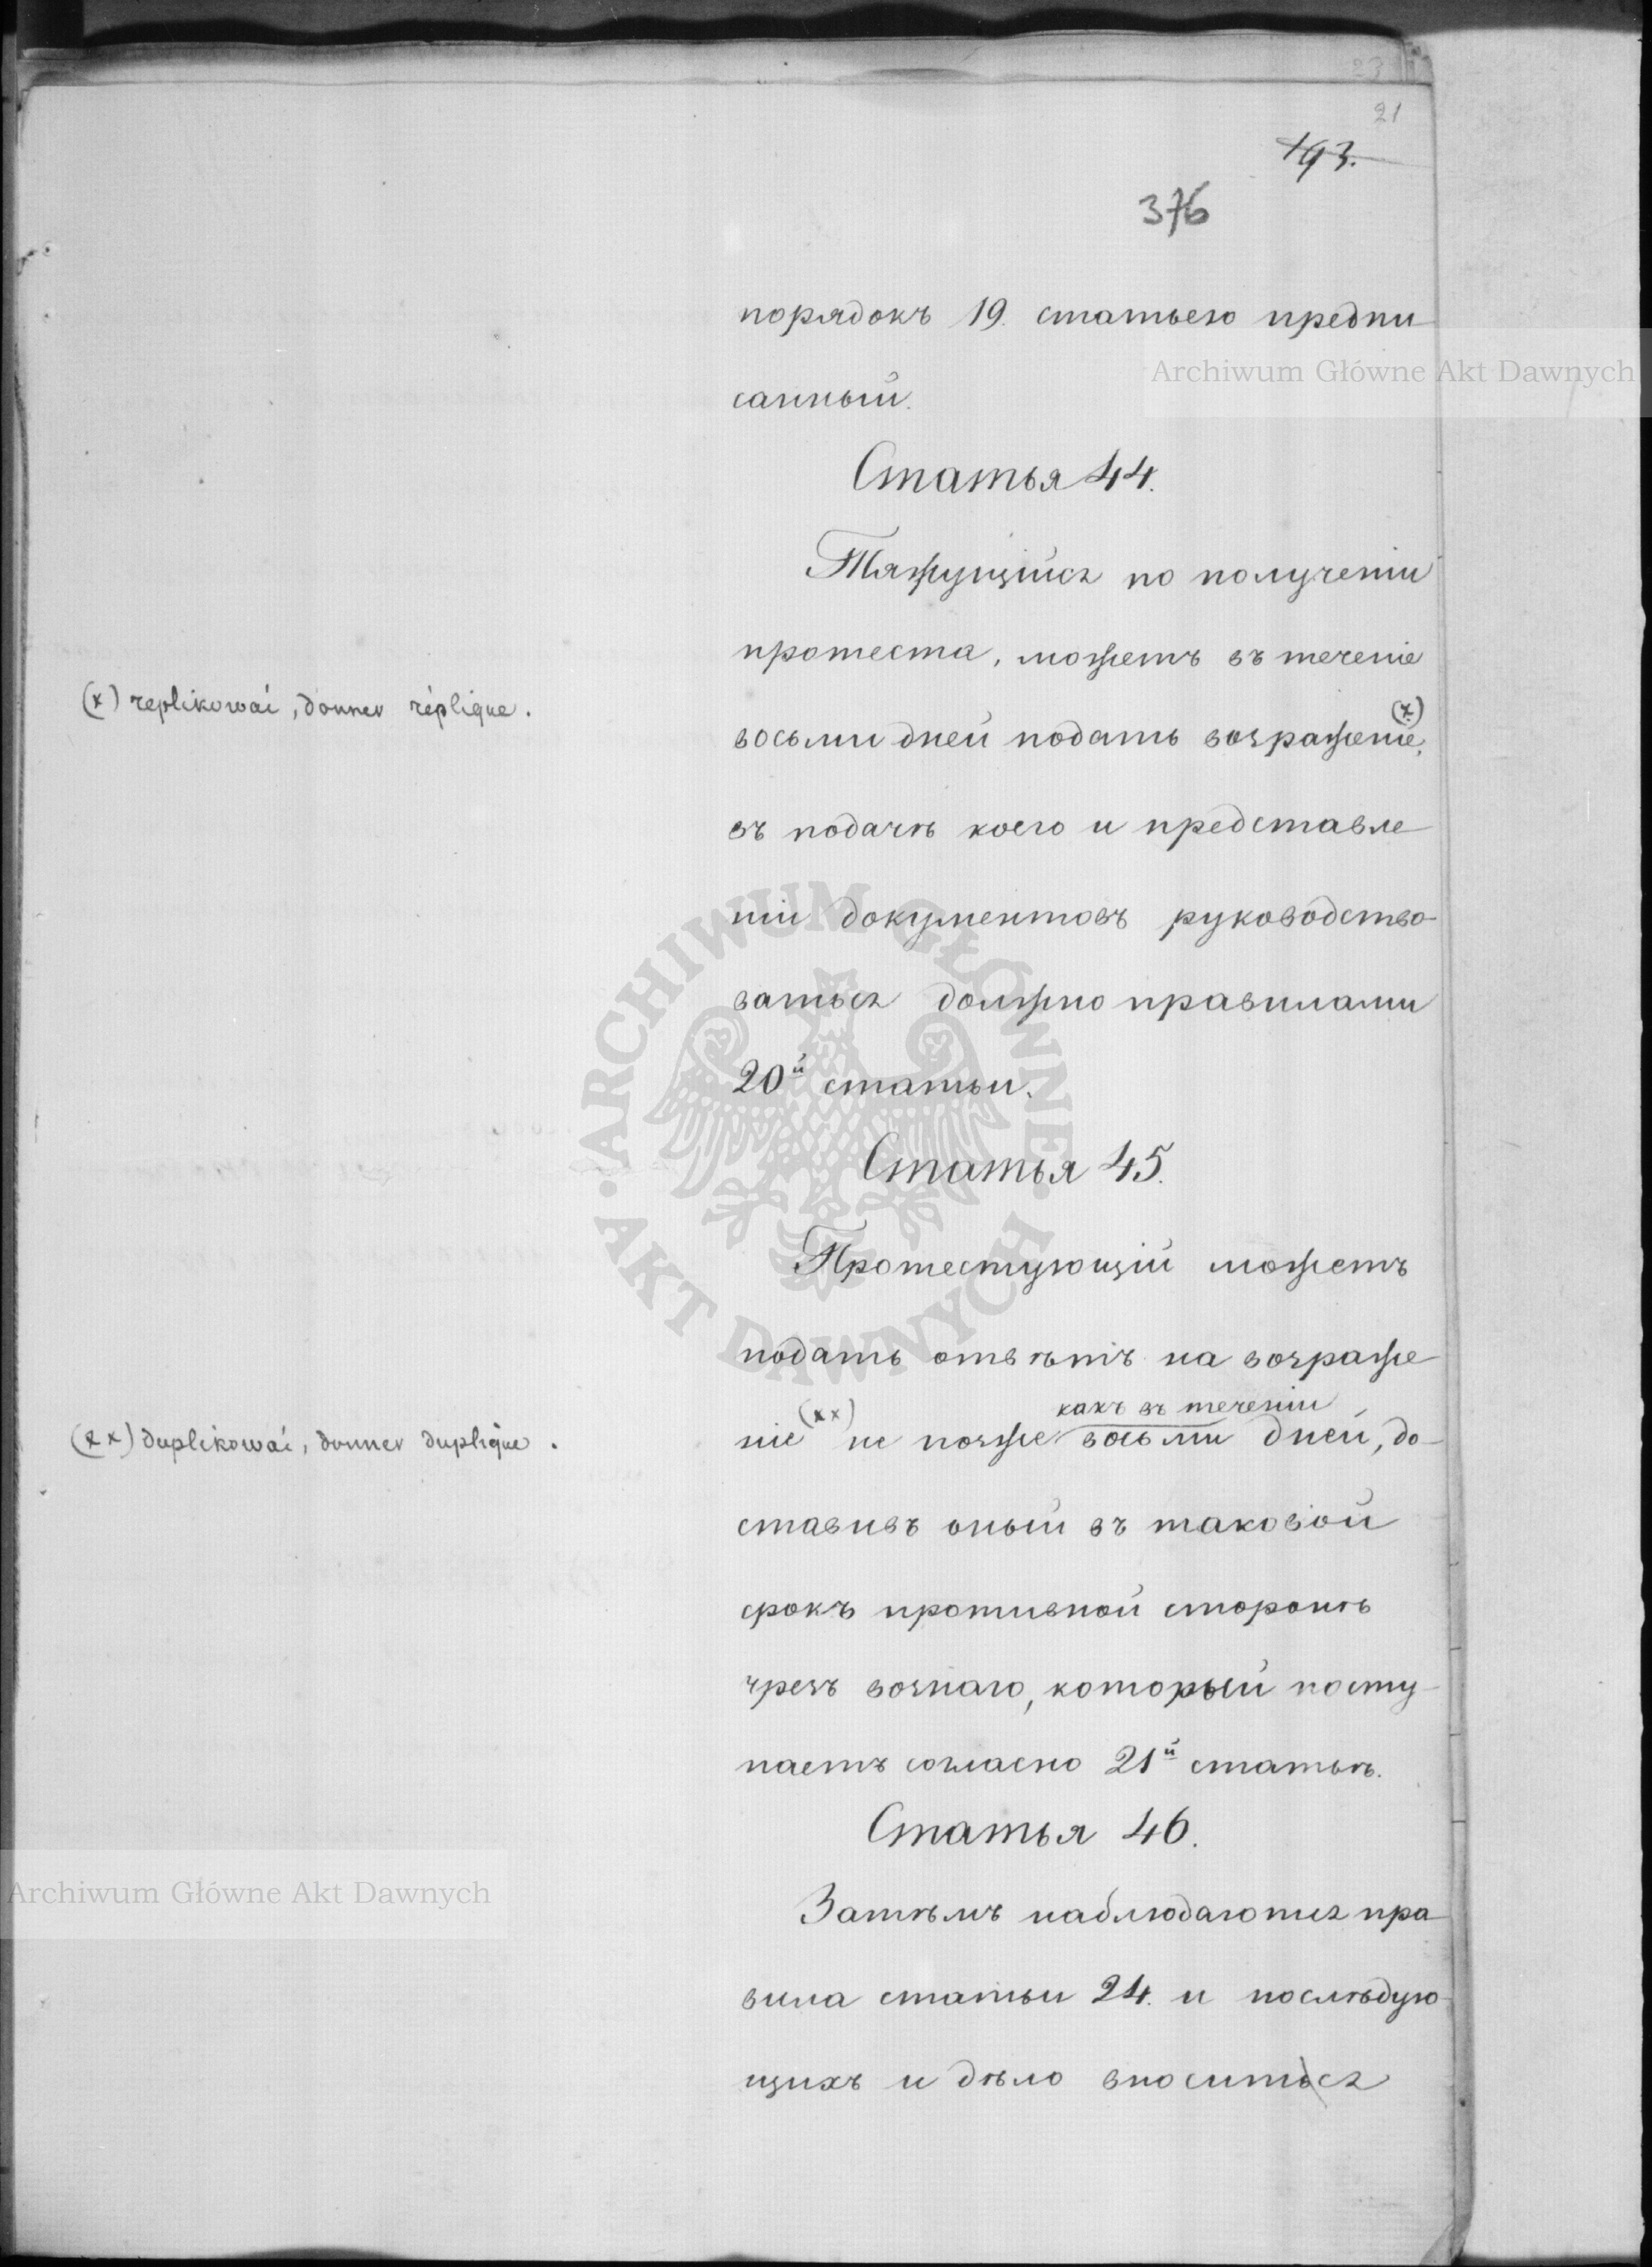 23
21
193.
376
порядокъ 19. статьею предпи
санный.
Archiwum Główne Akt Dawnych
Статья 44.
Тяжущійся по полученіи
протеста, можетъ въ теченіе
(x) replikować, donner réplique.
восьми дней подать возраженіе, (x)
въ подачѣ коего и представле
ніи документовъ руководство-
ваться должно правилами
20й статьи.
ARCHIWUM GŁÓWNE AKT DAWNYCH
Статья 45.
Протестующій можетъ
подать отвѣтъ на возраже-
какъ въ теченіи
(xx) duplikować, donner duplique.
ніе (xx) не позже восьми дней, до-
ставивъ оный въ таковой
срокъ противной сторонѣ
чрезъ вознаго, который посту-
паетъ согласно 21й статьѣ.
Статья 46.
Archiwum Główne Akt Dawnych
Затѣмъ наблюдаются пра-
вила статьи 24. и послѣдую-
щихъ и дѣло вноситься